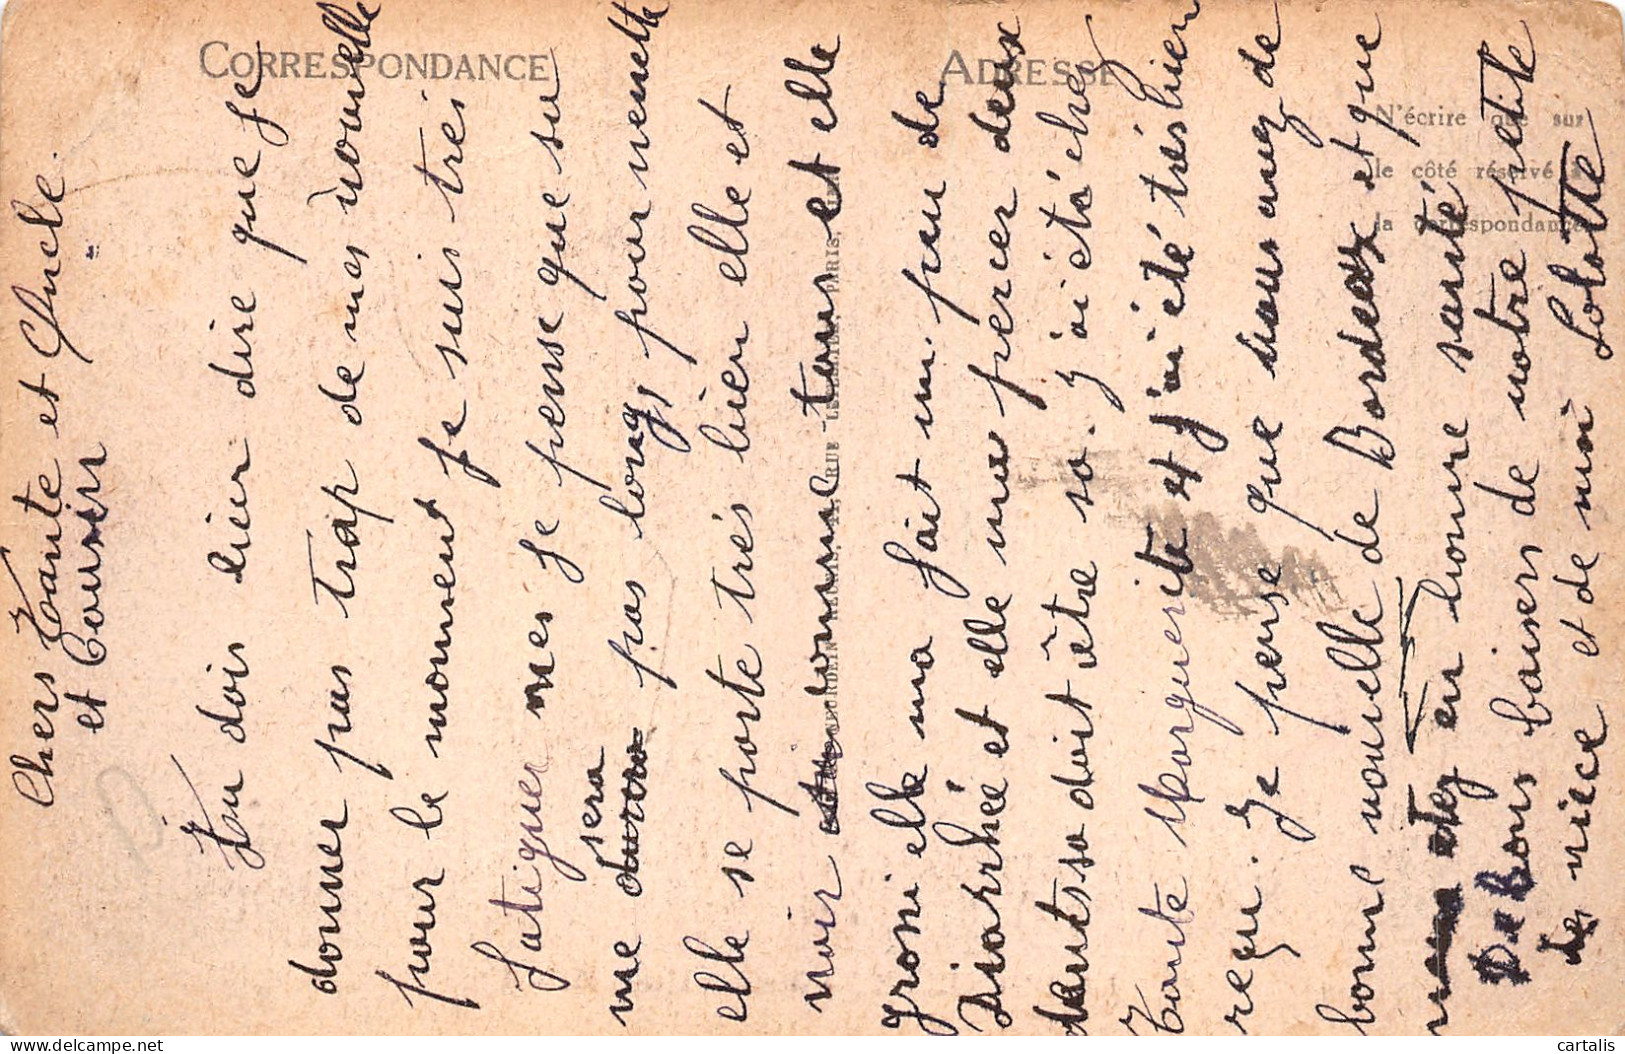 CORRESPONDANCE
ADRESSE
N'écrire que sur
le côté réservé à
la correspondance
Chers Tante et Oncle
et Cousin
J'en dois bien dire que je
donner pas trop de mes nouvelle
pour le moment je suis très
fatiguer mes je pense que sa
me sera pas longs pour nenette
elle se porte très bien elle et
noir comme tous et elle
grossi elle ma fait un peu de
Diarrhée et elle me percer deux
dents sa doit être sa. j'ai été chez
Tante Marguerite et j'ai été très bien
reçu. Je pense que vous avez de
bonne nouvelle de Bordeaux et que
étez en bonne santé
De bons baisers de notre petite
de nièce et de moi Lolotte
cartalis
delcampe.net